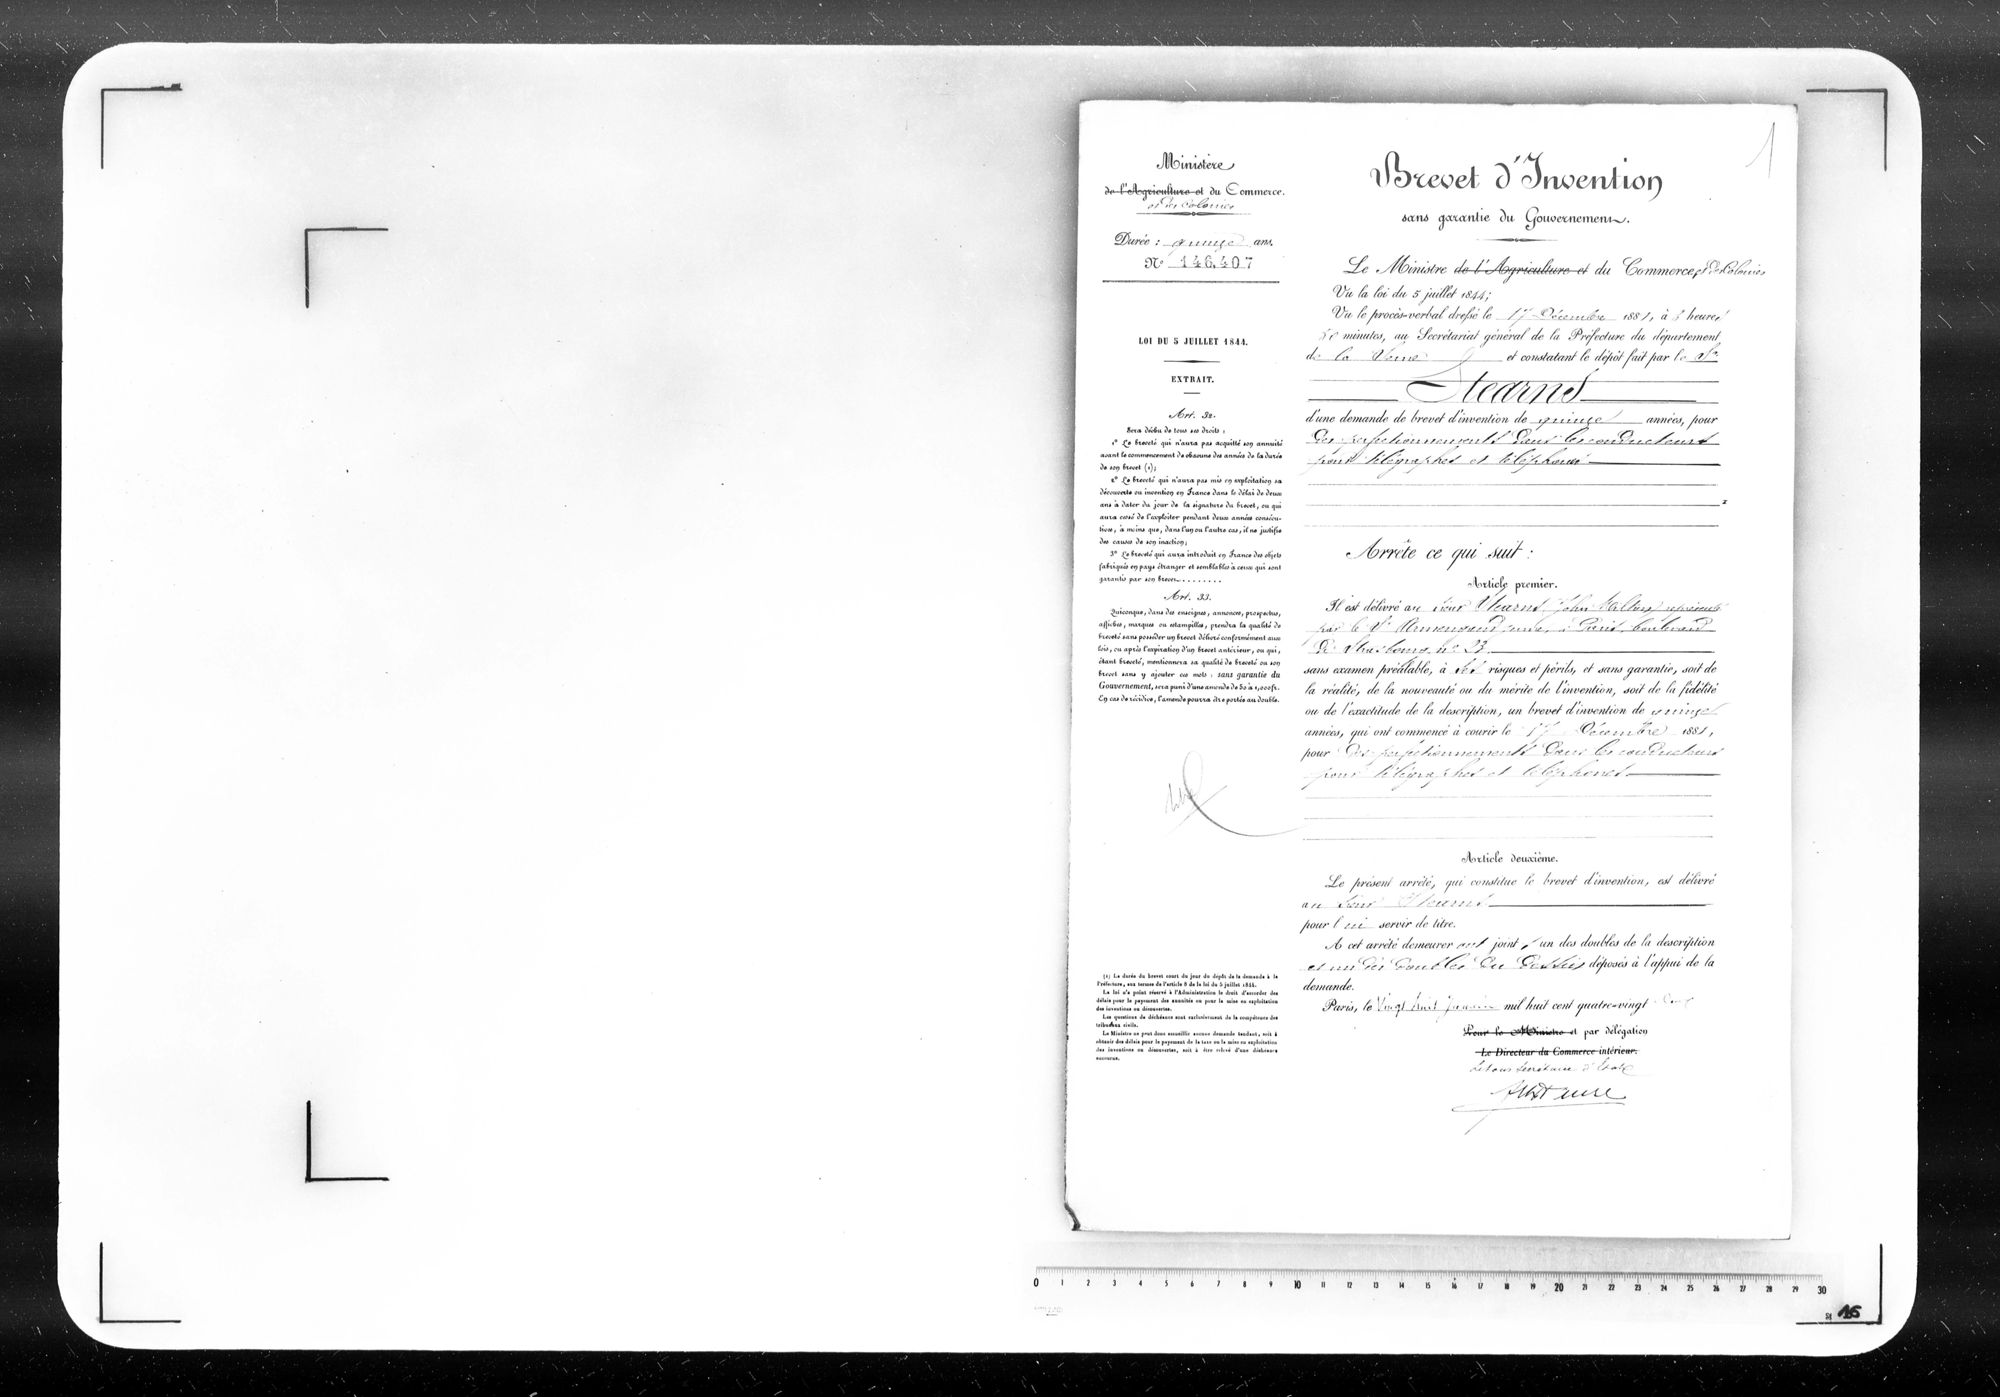 1
Ministère
de l'Agriculture et du Commerce.
et des Colonies
Durée : quinze ans.
N° 146,407
LOI DU 5 JUILLET 1844.
EXTRAIT.
Art. 32.
Sera déchu de tous ses droits :
1° Le breveté qui n'aura pas acquitté son annuité
avant le commencement de chacune des années de la durée
de son brevet (1);
2° Le breveté qui n'aura pas mis en exploitation sa
découverte ou invention en France dans le délai de deux
ans à dater du jour de la signature du brevet, ou qui
aura cessé de l'exploiter pendant deux années consécu-
tives, à moins que, dans l'un ou l'autre cas, il ne justifie
des causes de son inaction;
3° Le breveté qui aura introduit en France des objets
fabriqués en pays étranger et semblables à ceux qui sont
garantis par son brevet........
Art. 33.
Quiconque, dans des enseignes, annonces, prospectus,
affiches, marques ou estampilles, prendra la qualité de
breveté sans posséder un brevet délivré conformément aux
lois, ou après l'expiration d'un brevet antérieur, ou qui,
étant breveté, mentionnera sa qualité de breveté ou son
brevet sans y ajouter ces mots : sans garantie du
Gouvernement, sera puni d'une amende de 50 à 1,000 fr.
En cas de récidive, l'amende pourra être portée au double.
(1) La durée du brevet court du jour du dépôt de la demande à la
Préfecture, aux termes de l'article 8 de la loi du 5 juillet 1844.
La loi n'a point réservé à l'Administration le droit d'accorder des
délais pour le payement des annuités ou pour la mise en exploitation
des inventions ou découvertes.
Les questions de déchéance sont exclusivement de la compétence des
tribunaux civils.
Le Ministre ne peut donc accueillir aucune demande tendant, soit à
obtenir des délais pour le payement de la taxe ou la mise en exploitation
des inventions ou découvertes, soit à être relevé d'une déchéance
encourue.
Brevet d'Invention
sans garantie du Gouvernement.
Le Ministre de l'Agriculture et du Commerce, et des Colonies
Vu la loi du 5 juillet 1844;
Vu le procès-verbal dressé le 17 Décembre 1881, à 3 heures
50 minutes, au Secrétariat général de la Préfecture du département
de la Seine et constatant le dépôt fait par le Sr.
Stearns
d'une demande de brevet d'invention de quinze années, pour
des perfectionnements dans les conducteurs
pour télégraphes et téléphones
Arrête ce qui suit :
Article premier.
Il est délivré au Sieur Stearns, John représenté
par le Sr Armengaud jeune, à Paris, boulevard
de Strasbourg, n° 23
sans examen préalable, à ses risques et périls, et sans garantie, soit de
la réalité, de la nouveauté ou du mérite de l'invention, soit de la fidélité
ou de l'exactitude de la description, un brevet d'invention de quinze
années, qui ont commencé à courir le 17 Décembre 1881,
pour des perfectionnements dans les conducteurs
pour télégraphes et téléphones
Article deuxième.
Le présent arrêté, qui constitue le brevet d'invention, est délivré
au Sieur Stearns
pour lui servir de titre.
A cet arrêté demeureront joints un des doubles de la description
et un des doubles du dessin déposés à l'appui de la
demande.
Paris, le Vingt huit Janvier mil huit cent quatre-vingt deux
Pour le Ministre et par délégation
Le Directeur du Commerce intérieur.
Le Sous Secrétaire d'Etat
0 1 2 3 4 5 6 7 8 9 10 11 12 13 14 15 16 17 18 19 20 21 22 23 24 25 26 27 28 29 30
16